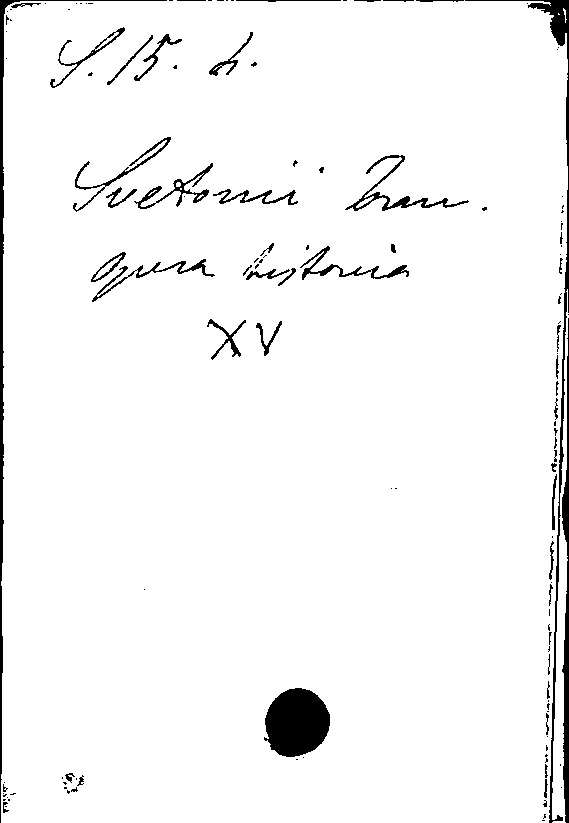 S. 15. h.
Svetonii Tran.
opera historia
XV